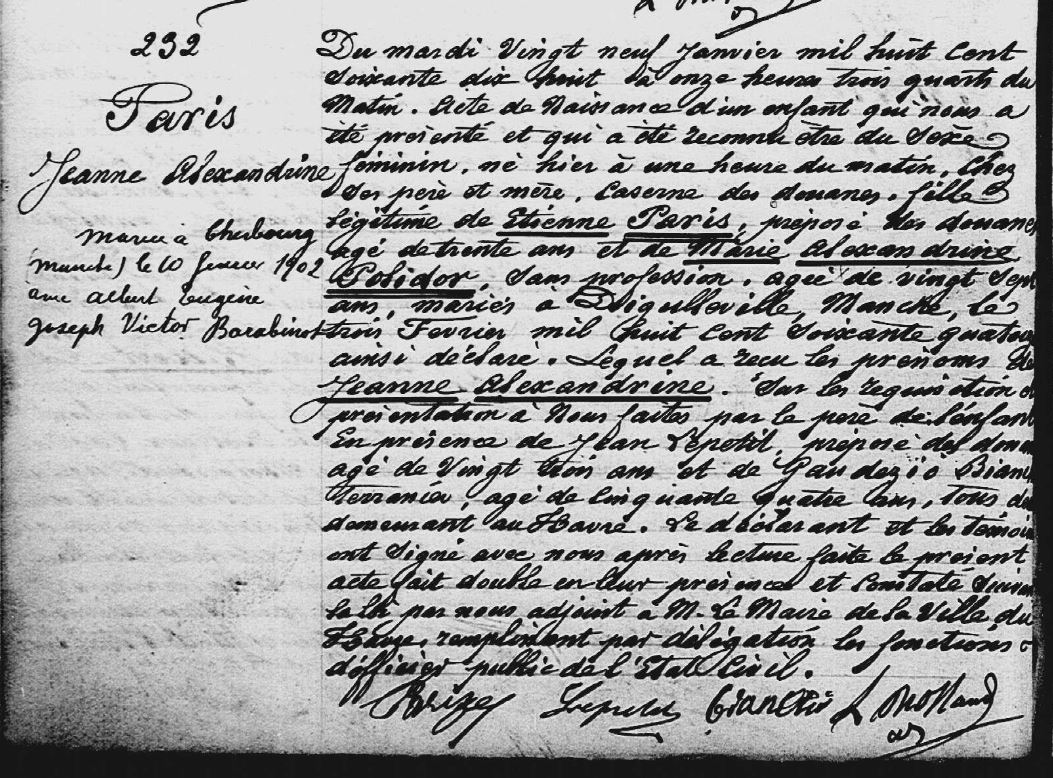 232
Paris
Jeanne Alexandrine
mariée à Cherbourg
(manche) le 10 février 1902
avec Albert Eugène
Joseph Victor Barabinot
Du mardi Vingt neuf Janvier mil huit Cent
soixante dix huit à onze heures trois quarts du
Matin. Acte de Naissance d'un enfant qui nous a
été présenté et qui a été reconnu être du Sexe
féminin, né hier à une heure du matin, chez
ses père et mère, Caserne des douanes, fille
légitime de Etienne Paris, préposé des douanes
agé de trente ans et de Marie Alexandrine
Polidor, sans profession, agée de vingt Sept
ans, mariés à Digulleville, Manche, le
trois Fevrier mil huit Cent Soixante quatorze
ainsi déclaré. Lequel a reçu les prénoms de
Jeanne Alexandrine. Sur les requisition et
présentation à Nous faites par le père de l'enfant
En présence de Jean Lepetit, préposé des douanes
agé de Vingt trois ans et de Gaudezio
agé de Cinquante quatre ans, tous deux
demeurant au Havre. Le déclarant et les témoins
ont Signé avec nous après lecture faite le présent
acte fait double en leur présence et Constaté Suivant
la loi par nous adjoint à M. Le Maire de la Ville du
Havre, remplissant par délégation les fonctions
d'officier public de l'Etat Civil.
Lepetit